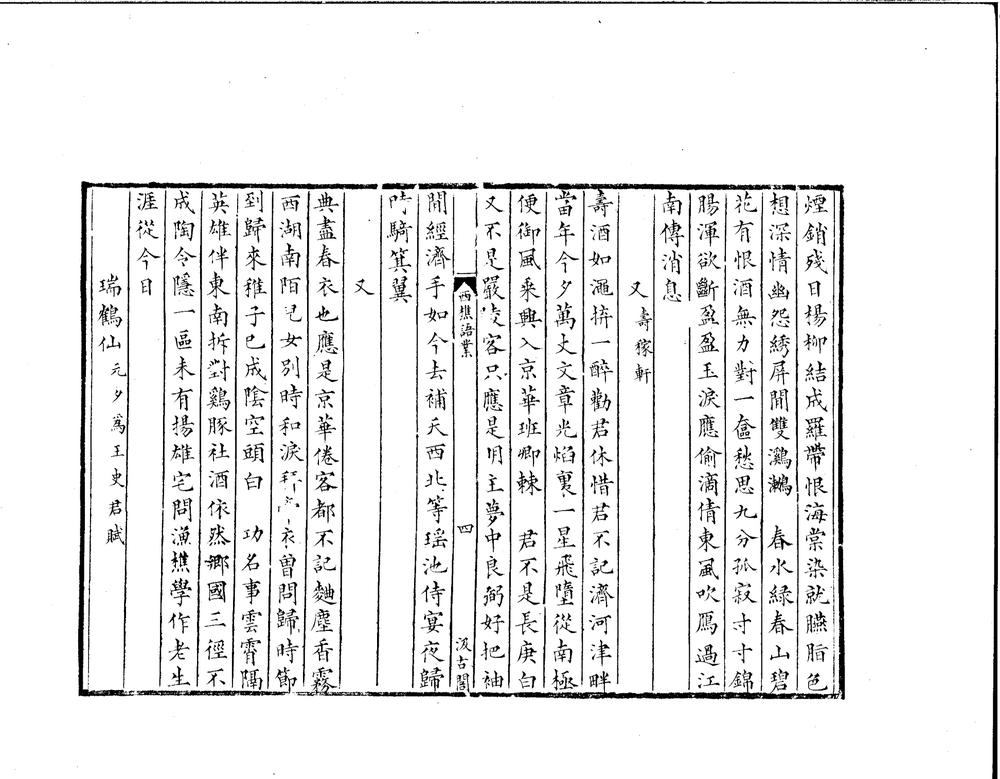 煙銷殘日楊柳結成羅帶恨海棠染就臙脂色
想深情幽怨綉屏間雙鸂鶒　春水綠春山碧
花有恨酒無力對一奩愁思九分孤寂寸寸錦
腸渾欲斷盈盈玉淚應偷滴倩東風吹鴈過江
南傳消息
又壽稼軒
壽酒如澠拚一醉勸君休惜君不記濟河津畔
當年今夕萬丈文章光焰裏一星飛墮從南極
便御風乘興入京華班卿棘　君不是長庚白
又不是嚴陵客只應是明主夢中良弼好把袖
西樵語業　四　汲古閣
間經濟手如今去補天西北等瑤池侍宴夜歸
時騎箕翼
又
典盡春衣也應是京華倦客都不記麯塵香霧
西湖南陌兒女別時和淚拜　衣曾問歸時節
到歸來稚子已成陰空頭白　功名事雲霄隔
英雄伴東南拆對鷄豚社酒依然鄉國三徑不
成陶令隱一區未有揚雄宅問漁樵學作老生
涯從今日
瑞鶴仙元夕爲王史君賦